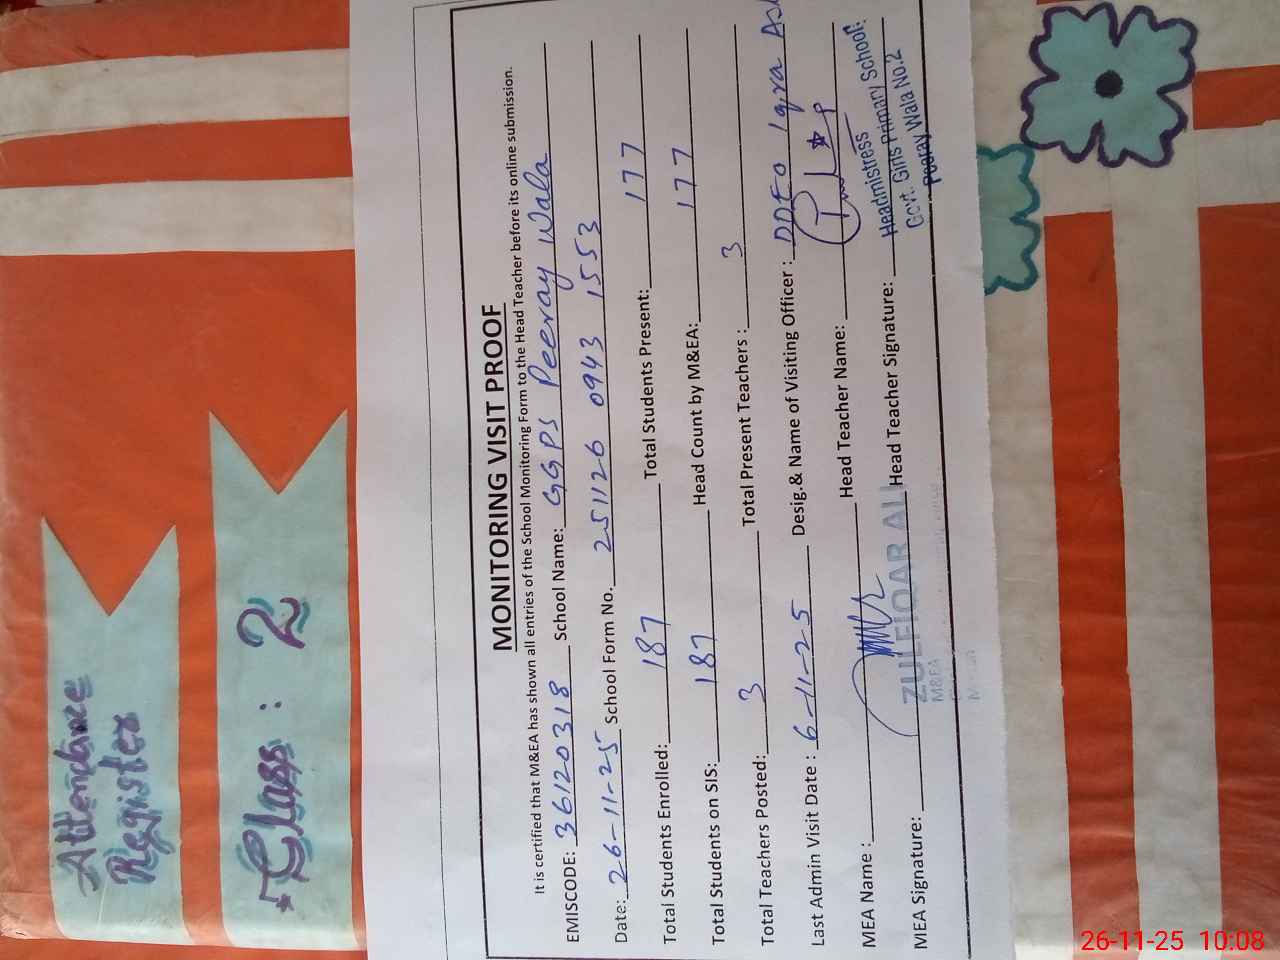 Attendance
Register
Class : 2
MONITORING VISIT PROOF
It is certified that M&EA has shown all entries of the School Monitoring Form to the Head Teacher before its online submission.
EMISCODE: 36120318 School Name: GGPS Peeray Wala
Date: 26-11-25 School Form No. 251126 0943 1553
Total Students Enrolled: 187 Total Students Present: 177
Total Students on SIS: 187 Head Count by M&EA: 177
Total Teachers Posted: 3 Total Present Teachers : 3
Last Admin Visit Date : 6-11-25 Desig.& Name of Visiting Officer : DDEO Iqra
MEA Name : Head Teacher Name:
MEA Signature: Head Teacher Signature:
ZULFIQAR ALI
M&EA
Headmistress
Govt. Girls Primary School:
Peeray Wala No.2
26-11-25 10:08